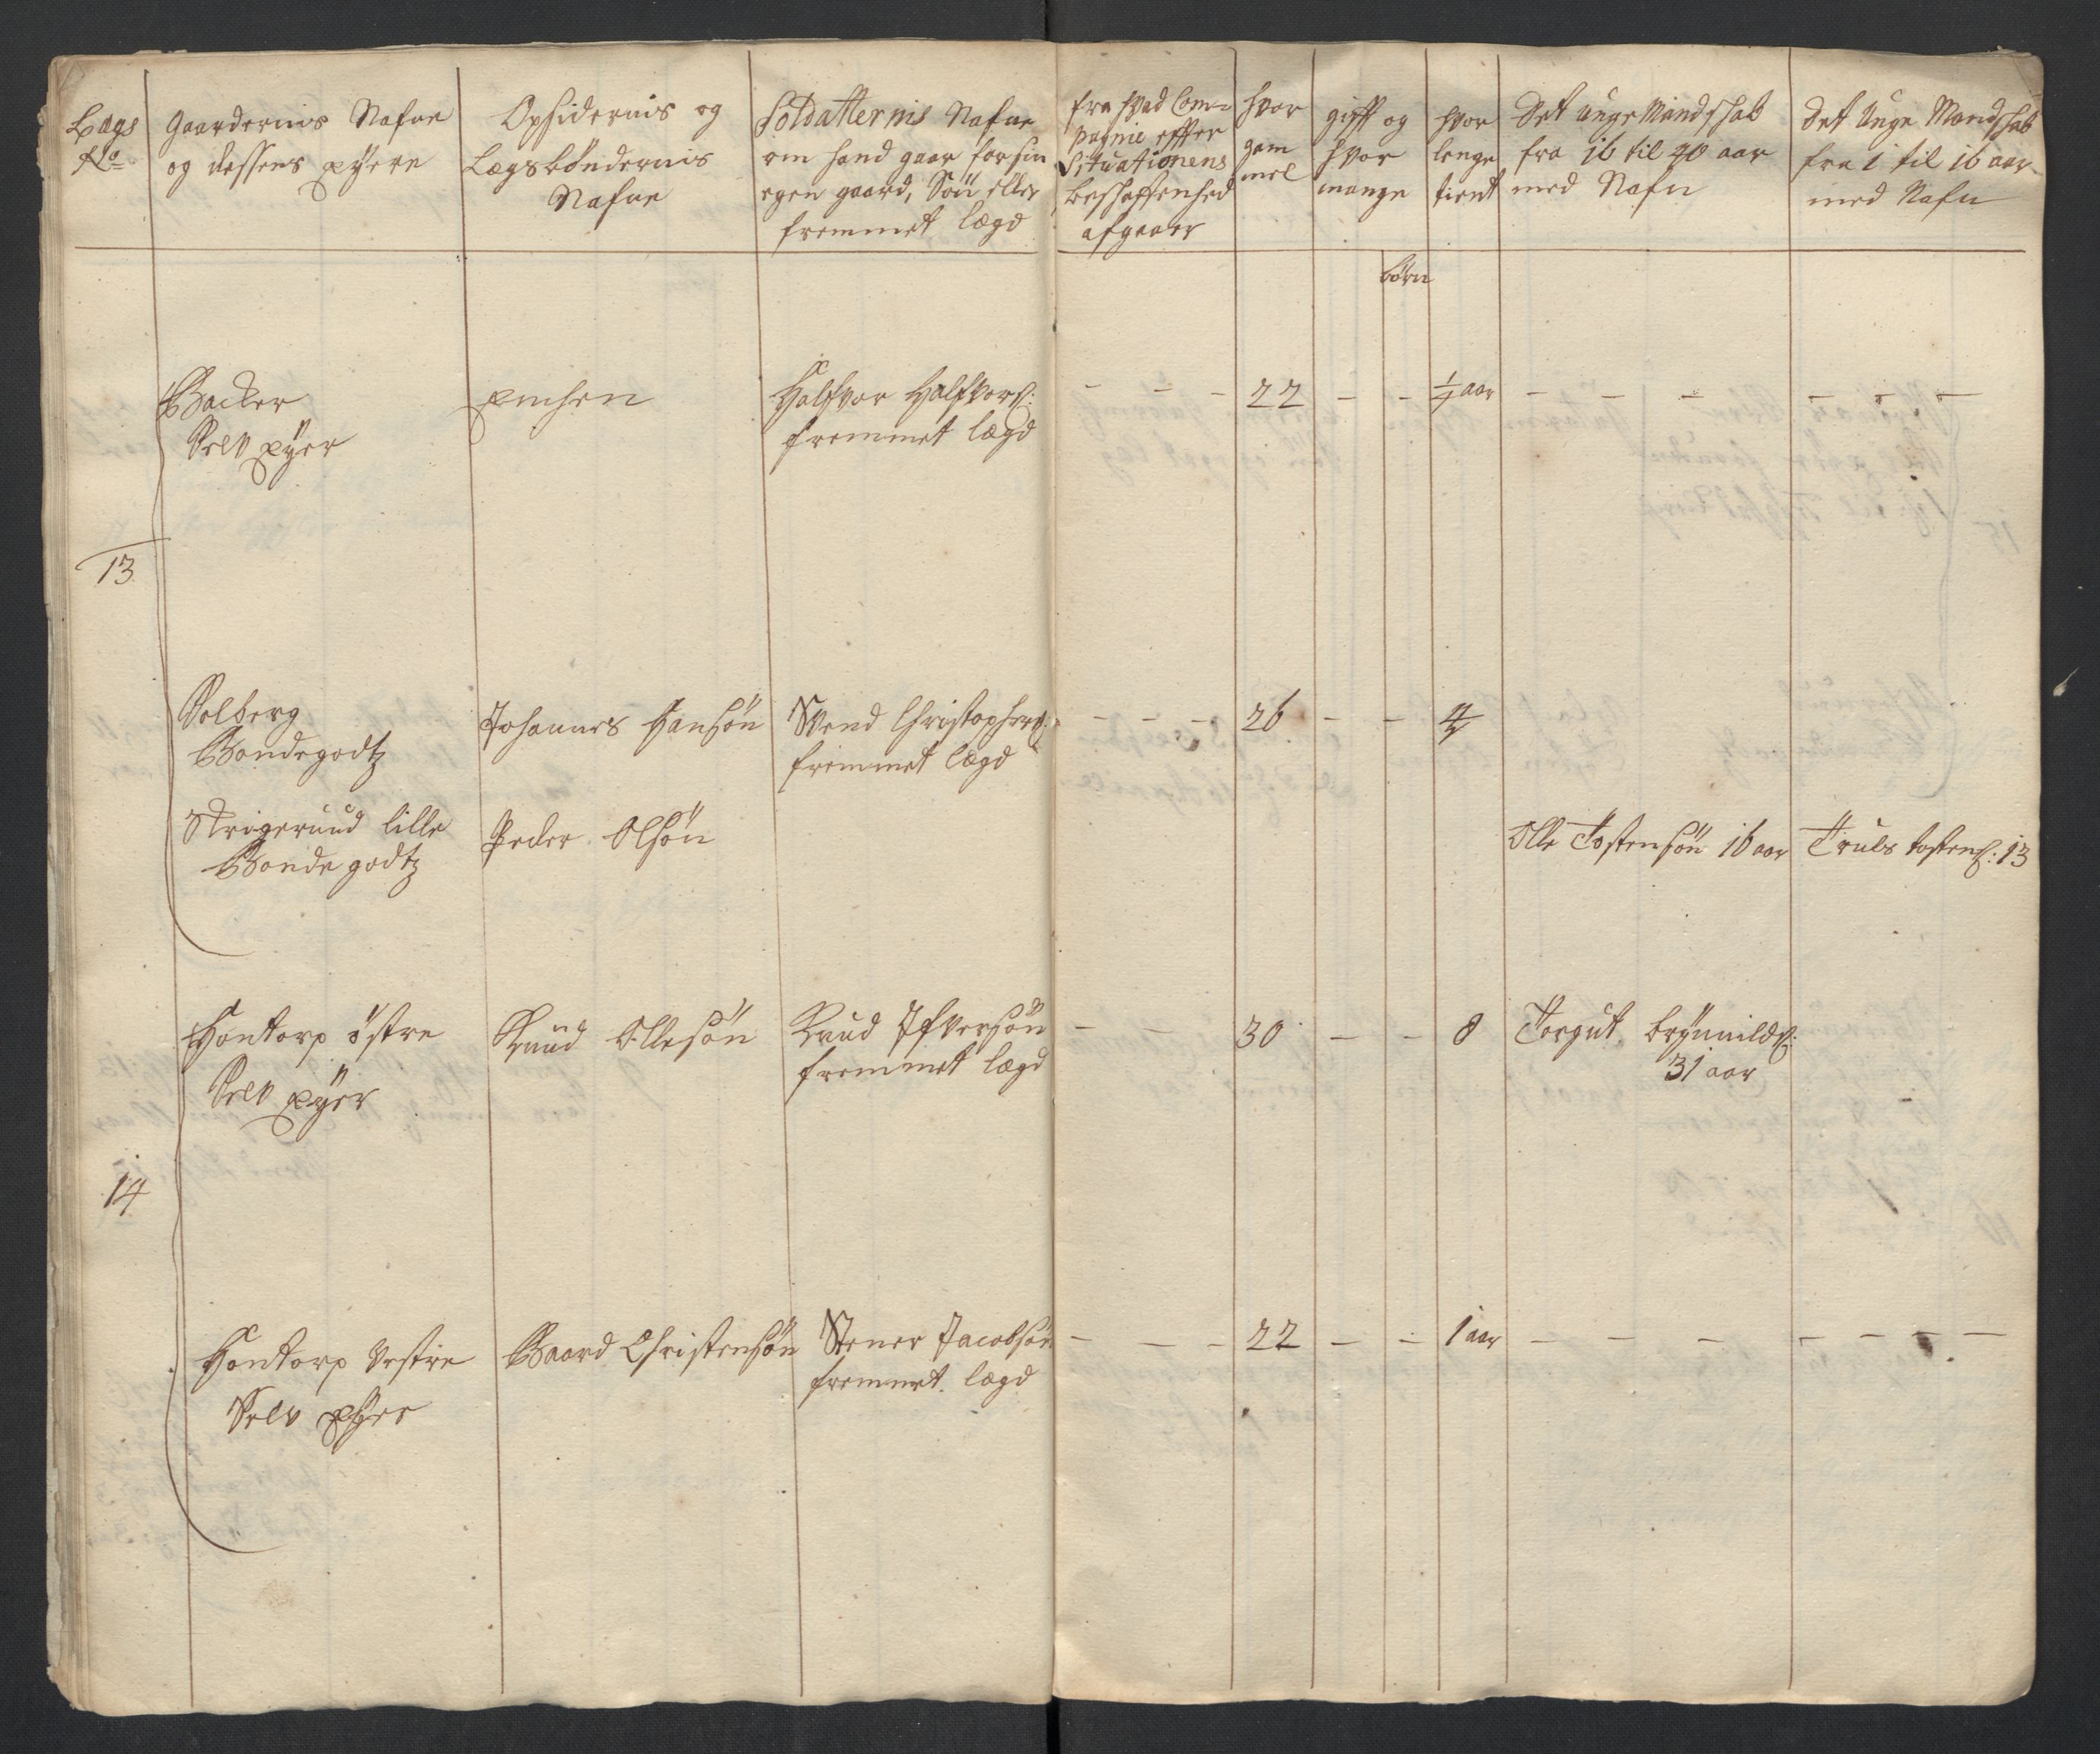 Lægs
No
Gaardernis Nafne
og dessens eÿere
Opsidernis og
Lægsböndernis
Nafne
Soldatternis Nafne
om hand gaar for sin
egen gaard, Sön eller
fremmet lægd
fra hvad Com=
pagnie effter
Situationens
beshaffenhed
afgaaer
hvor
gam
mel
gifft og
hvor
mange
hvor
lenge
tient
Det unge Mandshab
fra 16 til 40 aar
med Nafn
Det Unge Mandshab
fra 1 til 16 aar
med Nafn
börn
Backer
Selv eÿer
Halfvor Halfvors:
fremmet lægd
- - - 22 - - ½ aar - - - - - -
13
Solberg
Bondegodtz
Johannes Hansön
Svend Christophers:
fremmet lægd
- - - 26 - - 4
Strigeruud lille
Bonde godtz
Peder Olsön
Olle Tostensön 16 aar
Truls tostens: 13
Hontorp östre
Selv eÿer
Knud Ollesön
Knud Ifversön
fremmet lægd
- - 30 - - 8
Torgut Brÿnnilds:
31 aar
14
Hontorp Vestre
Selv eÿer
Baard Christensön
Stener Jacobsön
fremmet lægd
- - - 22 - - 1 aar - - - - - - -